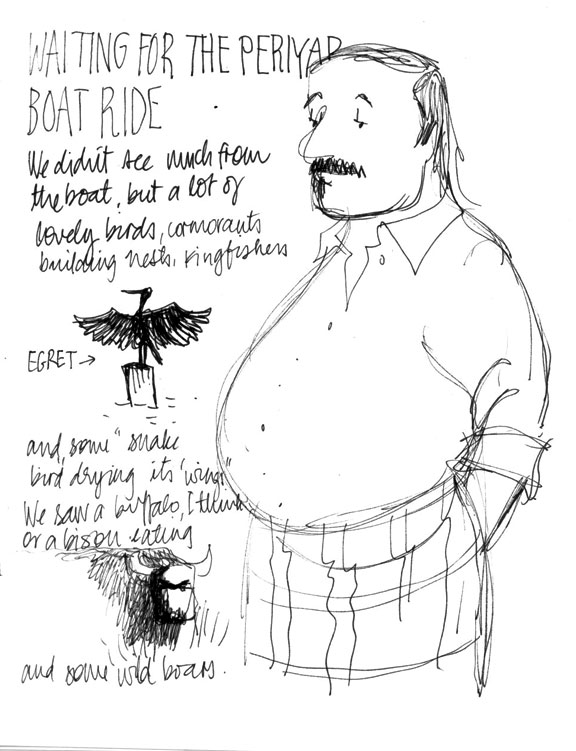 WAITING FOR THE PERIYAR
BOAT RIDE
We didn't see much from
the boat, but a lot of
lovely birds, cormorants
building nests, kingfishers
EGRET →
and, some "snake
bird drying its 'wings"
We saw a buffalo, I think
or a bison eating
and some wild boars.